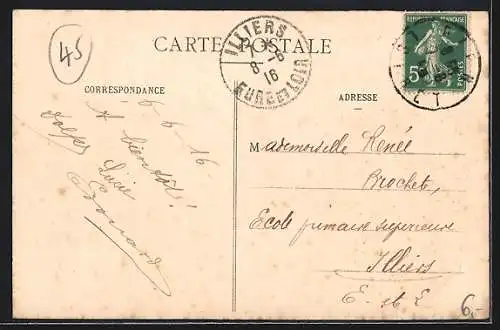 45
CARTE POSTALE
ILLIERS
7*
8-6
16
EURE ET LOIR
RÉPUBLIQUE FRANÇAISE
5c
POSTES
CORRESPONDANCE
ADRESSE
6-6-16
A bientôt!
Lucie
Edouard
Mademoiselle Renée
Brochet,
Ecole primaire supérieure
Illiers
E-et L
6,-